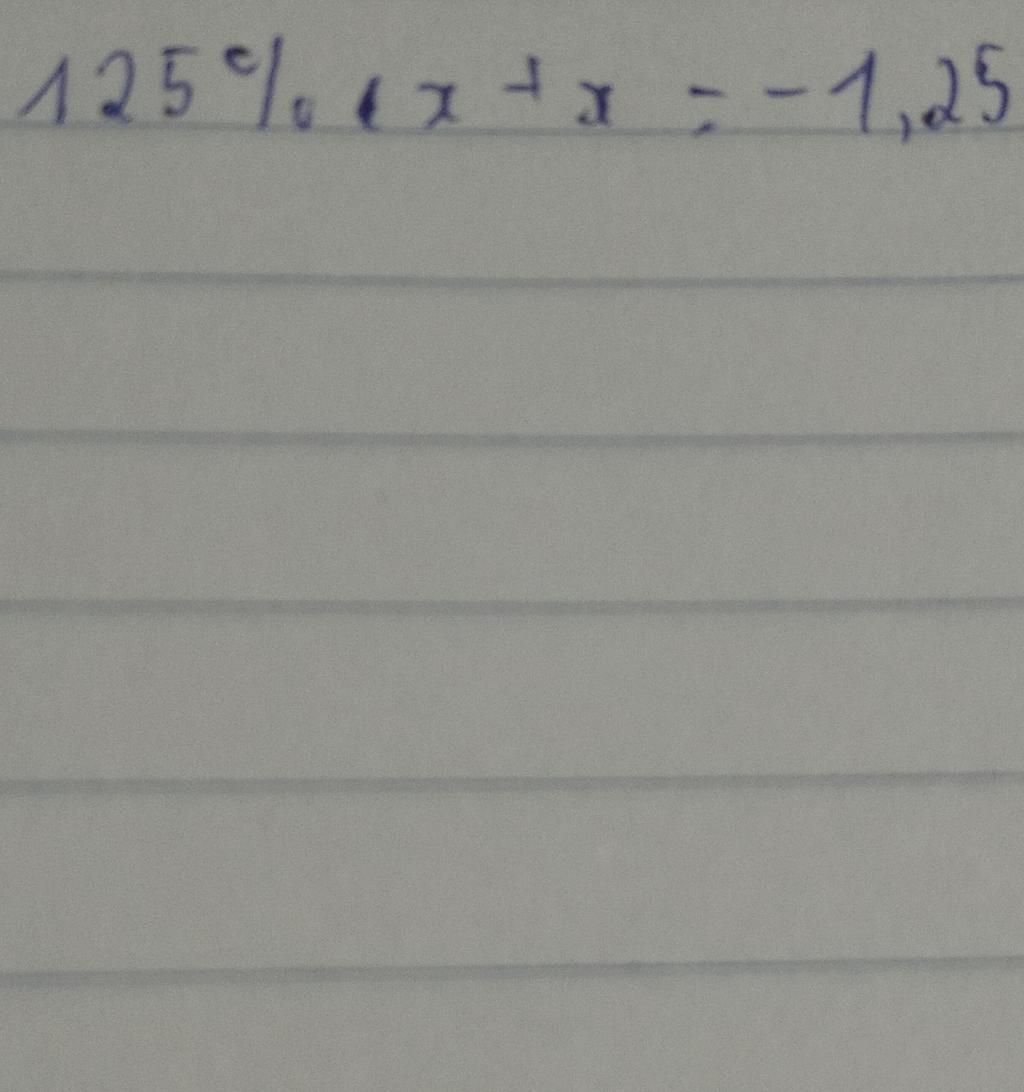 125% . x + x = -1,25